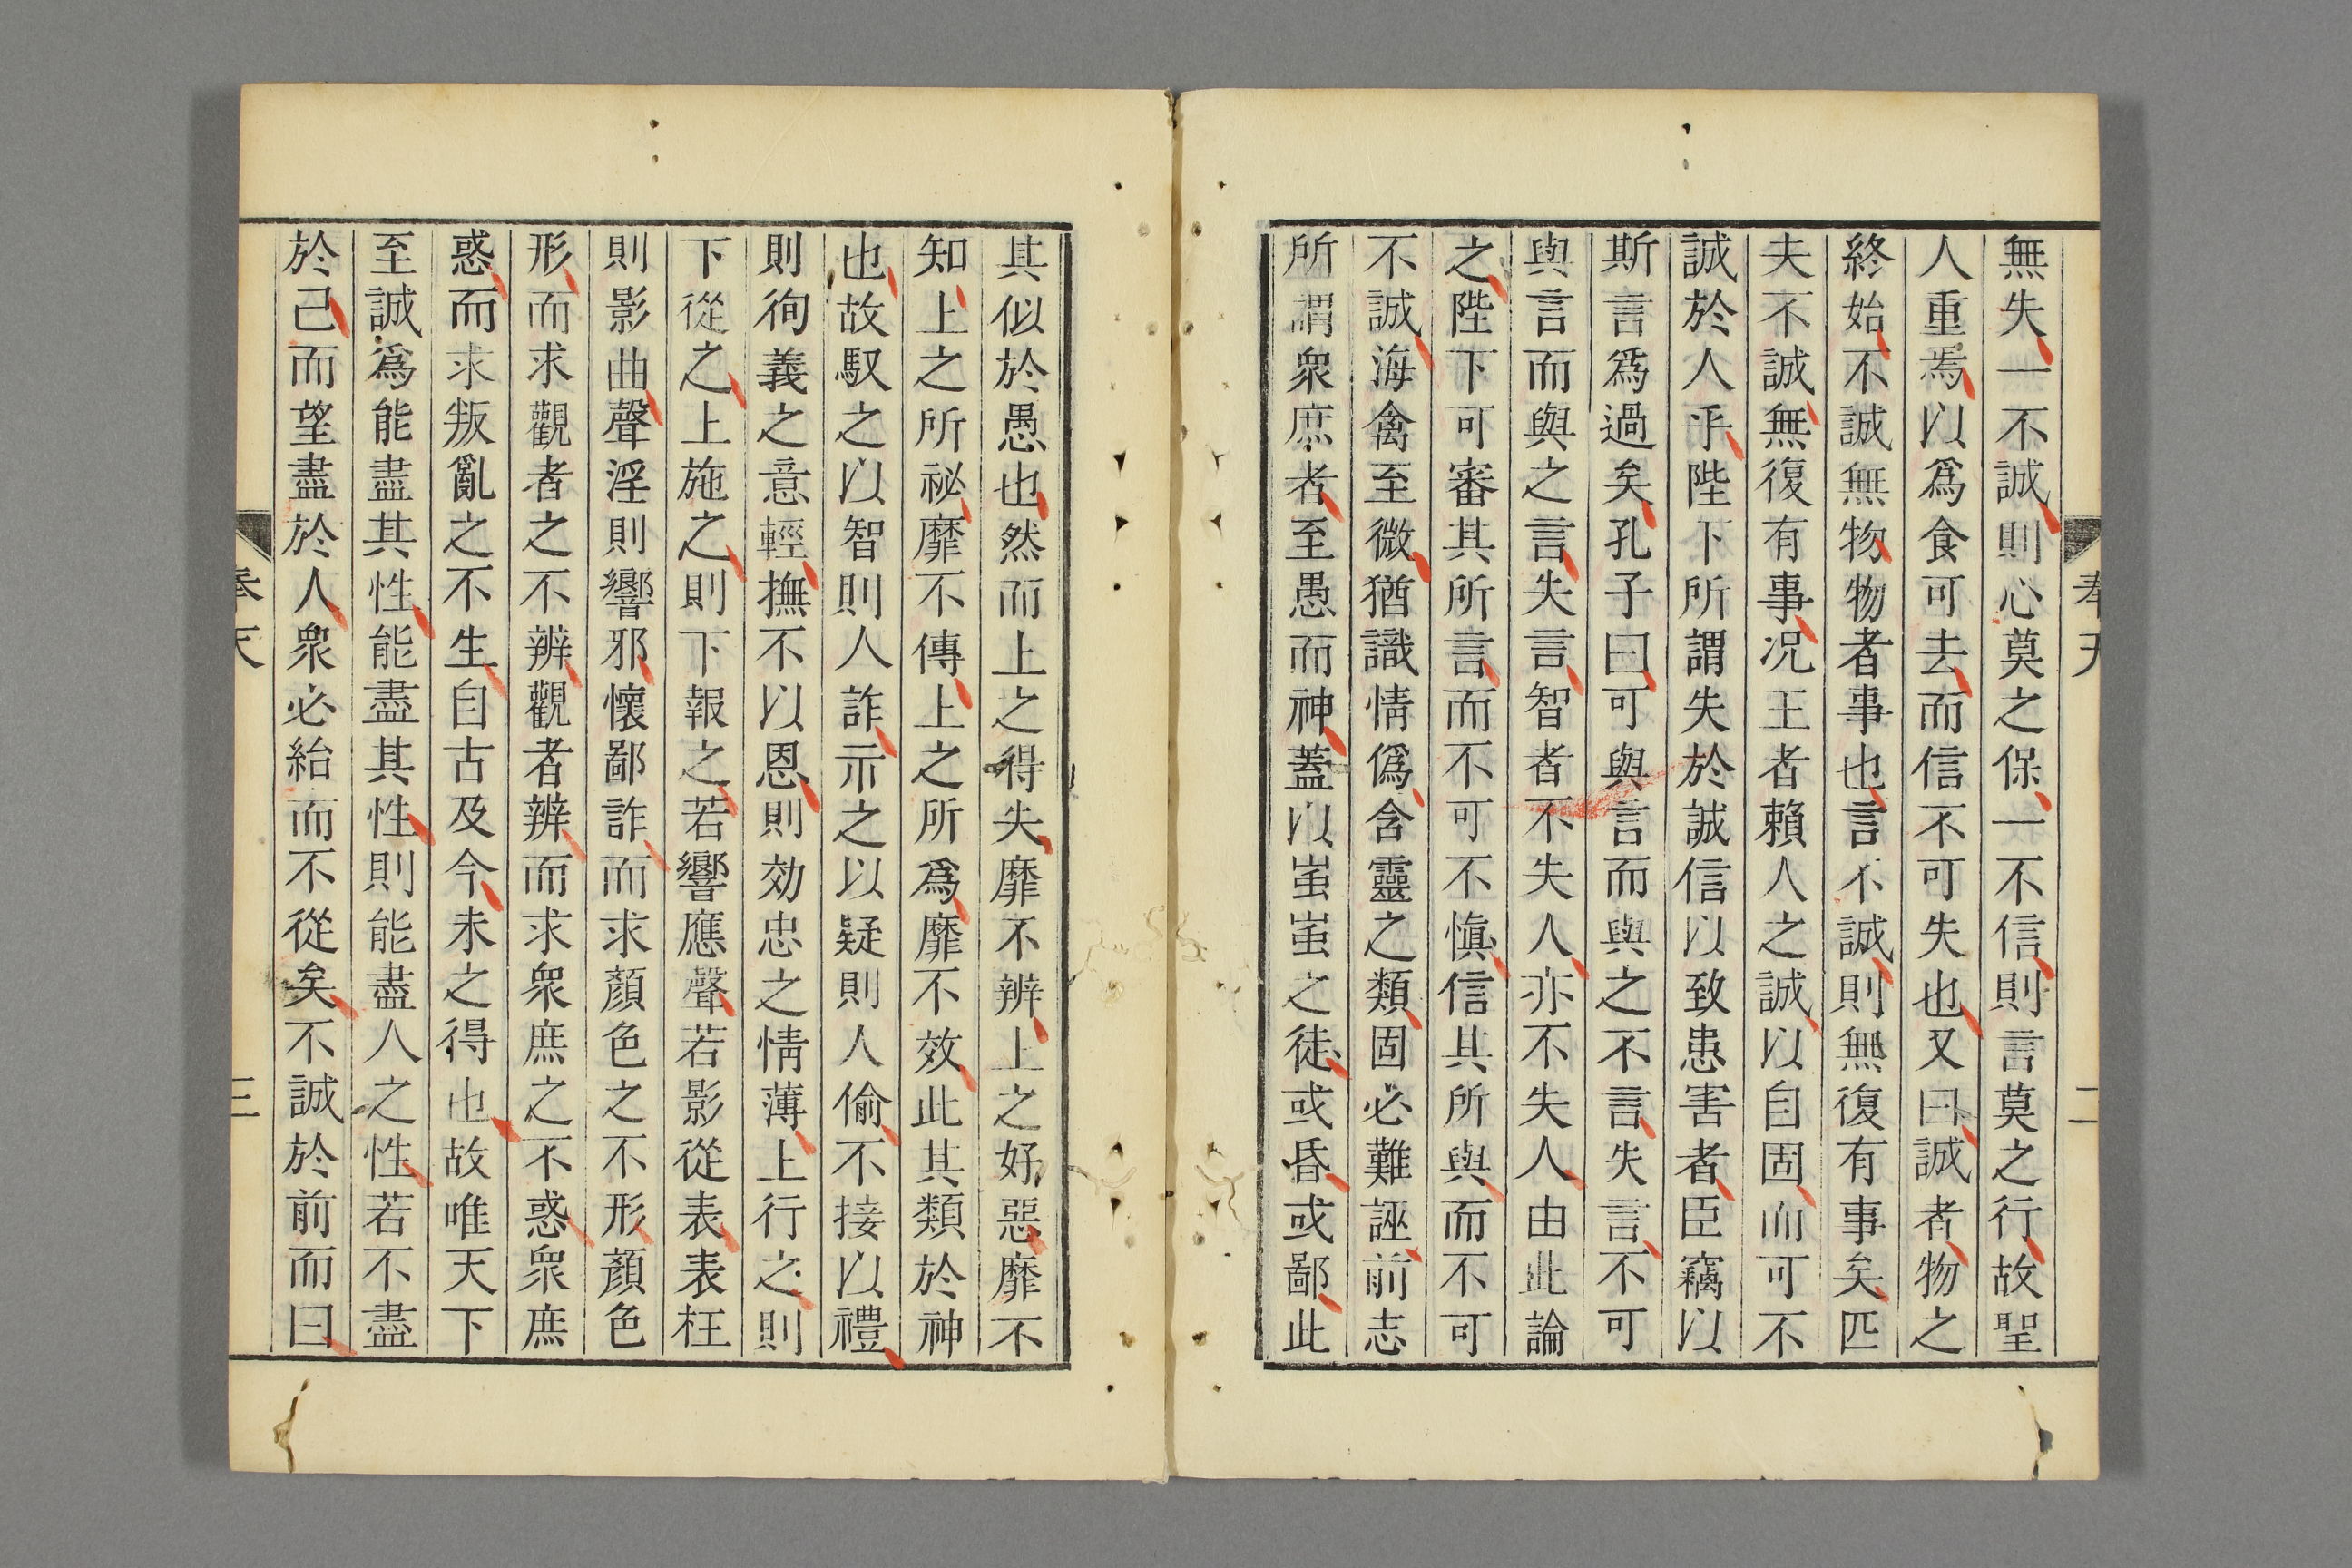 無失一不誠則心莫之保一不信則言莫之行故聖
人重焉以爲食可去而信不可失也又曰誠者物之
終始不誠無物物者事也言不誠則無復有事矣匹
夫不誠無復有事况王者賴人之誠以自固而可不
誠於人乎陛下所謂失於誠信以致患害者臣竊以
斯言爲過矣孔子曰可與言而與之不言失言不可
與言而與之言失言智者不失人亦不失人由此論
之陛下可審其所言而不可不愼信其所與而不可
不誠海禽至微猶識情僞含靈之類固必難誣前志
所謂衆庶者至愚而神蓋以蚩蚩之徒或昏或鄙此
奉天
二
其似於愚也然而上之得失靡不辨上之好惡靡不
知上之所祕靡不傳上之所爲靡不效此其類於神
也故馭之以智則人詐示之以疑則人偷不接以禮
則徇義之意輕撫不以恩則効忠之情薄上行之則
下從之上施之則下報之若響應聲若影從表表枉
則影曲聲淫則響邪懷鄙詐而求顏色之不形顏色
形而求觀者之不辨觀者辨而求衆庶之不惑衆庶
惑而求叛亂之不生自古及今未之得也故唯天下
至誠爲能盡其性能盡其性則能盡人之性若不盡
於己而望盡於人衆必紿而不從矣不誠於前而曰
奉天
三